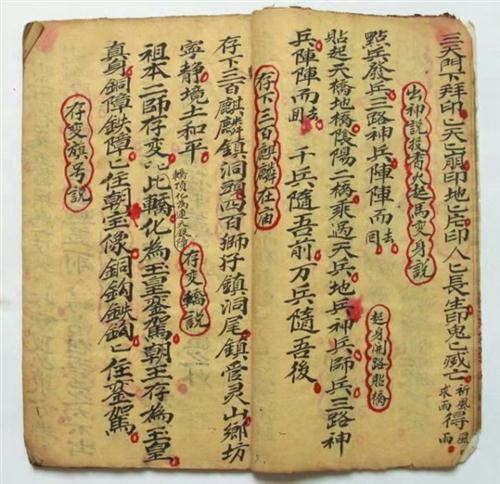 三天門下拜印匕天匕崩印地匕店印人匕長生印鬼匕滅亡祈風得風求雨雨
出神說投香火起馬变身說
點兵發兵三路神兵陣陣而去回
起身開路船橋
貼起天橋地橋陰陽二橋乘過天兵地兵神兵師兵三路神
兵陣陣而去回　千兵隨吾前万兵隨吾後
存下三百麒麟在庙
存下三百麒麟鎮洞頭四百獅孖鎮洞尾鎮管灵山鄉坊
寧静境土和平
存变轎說
祖本二師存变匕比轎化為玉皇銮駕朝王存為玉皇
真身銅障鉄障匕住朝宝像銅鈎鉄鈎匕住銮駕
存变旗号說